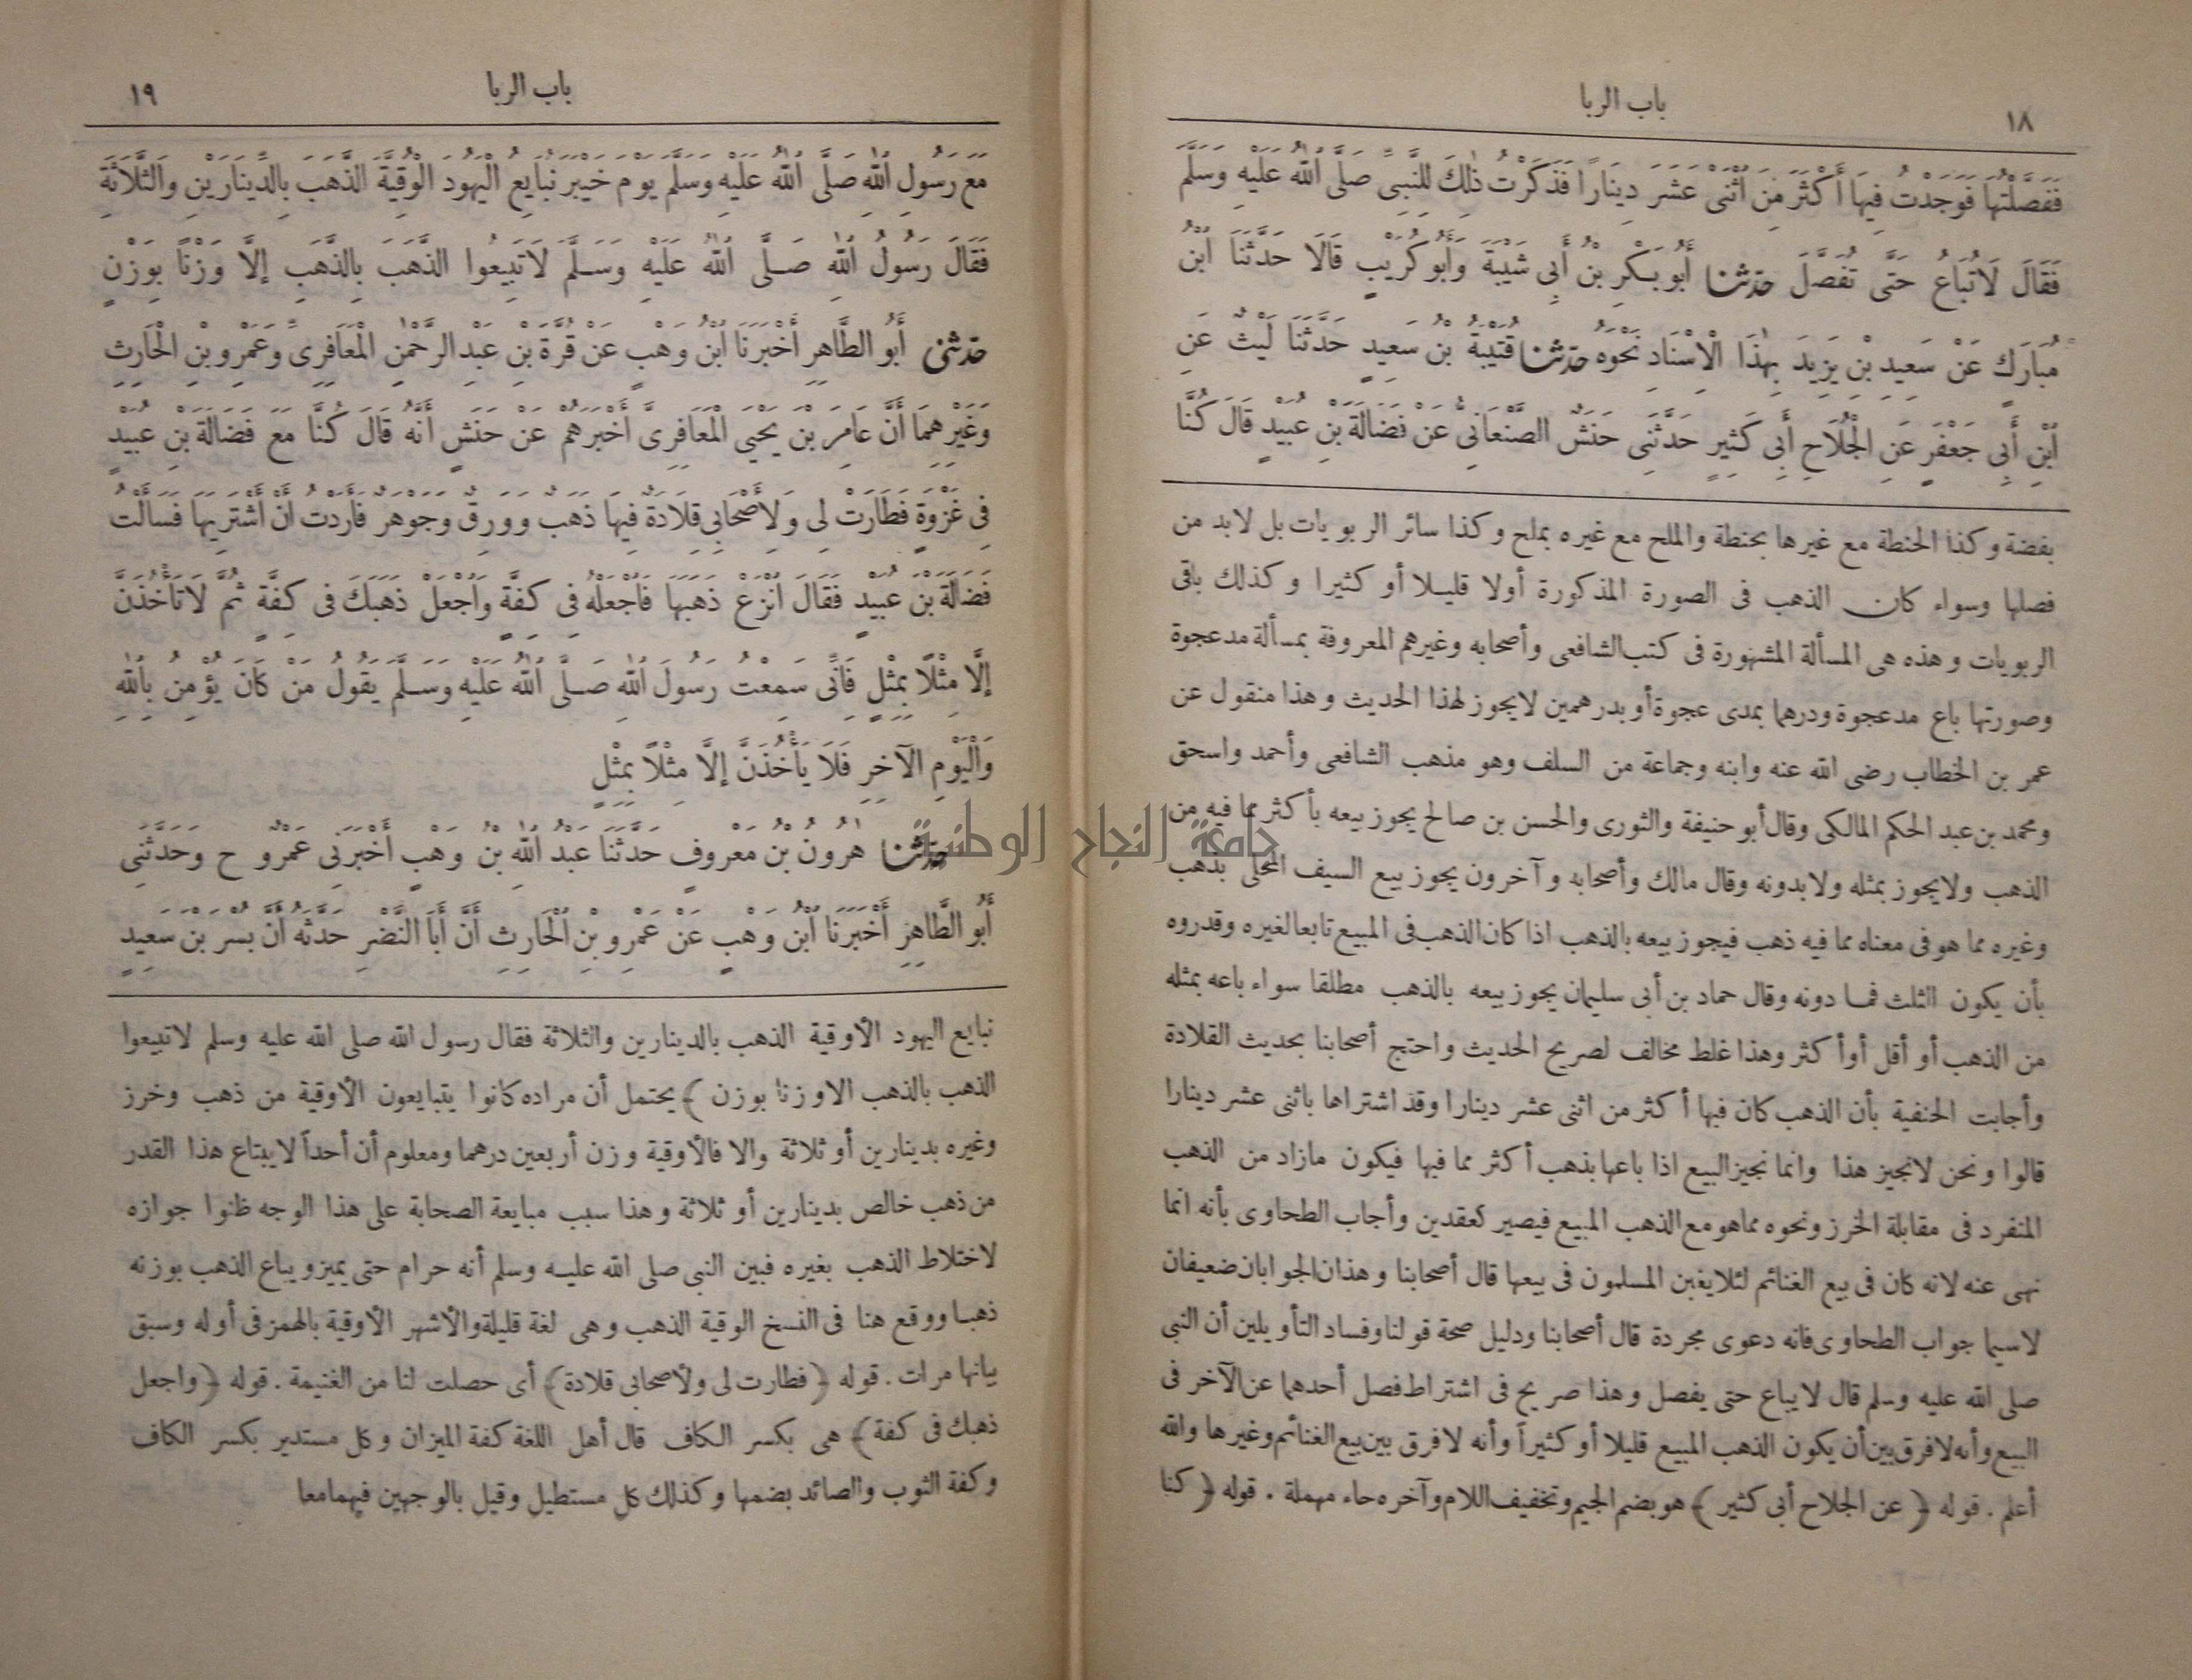 ١٨
باب الربا
فَفَصَّلْتُهَا فَوَجَدْتُ فِيهَا أَكْثَرَ مِنَ اثْنَىْ عَشَرَ دِينَارًا فَذَكَرْتُ ذٰلِكَ لِلنَّبِىِّ صَلَّى اللهُ عَلَيْهِ وَسَلَّمَ
فَقَالَ لَا تُبَاعُ حَتَّى تُفَصَّلَ حدثنا أَبُو بَكْرِ بْنُ أَبِى شَيْبَةَ وَأَبُو كُرَيْبٍ قَالَا حَدَّثَنَا ابْنُ
مُبَارَكٍ عَنْ سَعِيدِ بْنِ يَزِيدَ بِهٰذَا الْإِسْنَادِ نَحْوَهُ حدثنا قُتَيْبَةُ بْنُ سَعِيدٍ حَدَّثَنَا لَيْثٌ عَنِ
ابْنِ أَبِى جَعْفَرٍ عَنِ الْجُلَاحِ أَبِى كَثِيرٍ حَدَّثَنِى حَنَشٌ الصَّنْعَانِىُّ عَنْ فَضَالَةَ بْنِ عُبَيْدٍ قَالَ كُنَّا
بفضة وكذا الحنطة مع غيرها بحنطة والملح مع غيره بملح وكذا سائر الربويات بل لابد من
فصلها وسواء كان الذهب فى الصورة المذكورة أولا قليلا أو كثيرا وكذلك باقى
الربويات وهذه هى المسألة المشهورة فى كتب الشافعى وأصحابه وغيرهم المعروفة بمسألة مدعجوة
وصورتها باع مدعجوة ودرهما بمدى عجوة أو بدرهمين لايجوز لهذا الحديث وهذا منقول عن
عمر بن الخطاب رضى الله عنه وابنه وجماعة من السلف وهو مذهب الشافعى وأحمد واسحق
ومحمد بن عبد الحكم المالكى وقال أبو حنيفة والثورى والحسن بن صالح يجوز بيعه بأكثر مما فيه من
الذهب ولايجوز بمثله ولا بدونه وقال مالك وأصحابه وآخرون يجوز بيع السيف المحلى بذهب
وغيره مما هو فى معناه مما فيه ذهب فيجوز بيعه بالذهب اذا كان الذهب فى المبيع تابعا لغيره وقدروه
بأن يكون الثلث فما دونه وقال حماد بن أبى سليمان يجوز بيعه بالذهب مطلقا سواء باعه بمثله
من الذهب أو أقل أو أكثر وهذا غلط مخالف لصريح الحديث واحتج أصحابنا بحديث القلادة
وأجابت الحنفية بأن الذهب كان فيها أكثر من اثنى عشر دينارا وقد اشتراها باثنى عشر دينارا
قالوا ونحن لانجيز هذا وانما نجيز البيع اذا باعها بذهب أكثر مما فيها فيكون مازاد من الذهب
المنفرد فى مقابلة الخرز ونحوه مما هو مع الذهب المبيع فيصير كعقدين وأجاب الطحاوى بأنه انما
نهى عنه لانه كان فى بيع الغنائم لئلا يغبن المسلمون فى بيعها قال أصحابنا وهذان الجوابان ضعيفان
لاسيما جواب الطحاوى فانه دعوى مجردة قال أصحابنا ودليل صحة قولنا وفساد التأويلين أن النبى
صلى الله عليه وسلم قال لايباع حتى يفصل وهذا صريح فى اشتراط فصل أحدهما عن الآخر فى
البيع وأنه لافرق بين أن يكون الذهب المبيع قليلا أو كثيراً وأنه لافرق بين بيع الغنائم وغيرها والله
أعلم . قوله ﴿عن الجلاح أبى كثير﴾ هو بضم الجيم وتخفيف اللام وآخره حاء مهملة . قوله ﴿كنا
باب الربا
١٩
مَعَ رَسُولِ اللهِ صَلَّى اللهُ عَلَيْهِ وَسَلَّمَ يَوْمَ خَيْبَرَ نُبَايِعُ الْيَهُودَ الْوُقِيَّةَ الذَّهَبَ بِالدِّينَارَيْنِ وَالثَّلَاثَةِ
فَقَالَ رَسُولُ اللهِ صَلَّى اللهُ عَلَيْهِ وَسَلَّمَ لَا تَبِيعُوا الذَّهَبَ بِالذَّهَبِ إِلَّا وَزْنًا بِوَزْنٍ
حدثنى أَبُو الطَّاهِرِ أَخْبَرَنَا ابْنُ وَهْبٍ عَنْ قُرَّةَ بْنِ عَبْدِ الرَّحْمٰنِ الْمَعَافِرِىِّ وَعَمْرِو بْنِ الْحَارِثِ
وَغَيْرِهِمَا أَنَّ عَامِرَ بْنَ يَحْيَى الْمَعَافِرِىَّ أَخْبَرَهُمْ عَنْ حَنَشٍ أَنَّهُ قَالَ كُنَّا مَعَ فَضَالَةَ بْنِ عُبَيْدٍ
فِى غَزْوَةٍ فَطَارَتْ لِى وَلِأَصْحَابِى قِلَادَةٌ فِيهَا ذَهَبٌ وَوَرِقٌ وَجَوْهَرٌ فَأَرَدْتُ أَنْ أَشْتَرِيَهَا فَسَأَلْتُ
فَضَالَةَ بْنَ عُبَيْدٍ فَقَالَ انْزِعْ ذَهَبَهَا فَاجْعَلْهُ فِى كِفَّةٍ وَاجْعَلْ ذَهَبَكَ فِى كِفَّةٍ ثُمَّ لَا تَأْخُذَنَّ
إِلَّا مِثْلًا بِمِثْلٍ فَإِنِّى سَمِعْتُ رَسُولَ اللهِ صَلَّى اللهُ عَلَيْهِ وَسَلَّمَ يَقُولُ مَنْ كَانَ يُؤْمِنُ بِاللهِ
وَالْيَوْمِ الْآخِرِ فَلَا يَأْخُذَنَّ إِلَّا مِثْلًا بِمِثْلٍ
حدثنا هٰرُونُ بْنُ مَعْرُوفٍ حَدَّثَنَا عَبْدُ اللهِ بْنُ وَهْبٍ أَخْبَرَنِى عَمْرٌو ح وَحَدَّثَنِى
أَبُو الطَّاهِرِ أَخْبَرَنَا ابْنُ وَهْبٍ عَنْ عَمْرِو بْنِ الْحَارِثِ أَنَّ أَبَا النَّضْرِ حَدَّثَهُ أَنَّ بُسْرَ بْنَ سَعِيدٍ
نبايع اليهود الأوقية الذهب بالدينارين والثلاثة فقال رسول الله صلى الله عليه وسلم لاتبيعوا
الذهب بالذهب الا وزنا بوزن﴾ يحتمل أن مراده كانوا يتبايعون الأوقية من ذهب وخرز
وغيره بدينارين أو ثلاثة والا فالأوقية وزن أربعين درهما ومعلوم أن أحداً لايبتاع هذا القدر
من ذهب خالص بدينارين أو ثلاثة وهذا سبب مبايعة الصحابة على هذا الوجه ظنوا جوازه
لاختلاط الذهب بغيره فبين النبى صلى الله عليه وسلم أنه حرام حتى يميز ويباع الذهب بوزنه
ذهبا ووقع هنا فى النسخ الوقية الذهب وهى لغة قليلة والأشهر الأوقية بالهمز فى أوله وسبق
بيانها مرات . قوله ﴿فطارت لى ولأصحابى قلادة﴾ أى حصلت لنا من الغنيمة . قوله ﴿واجعل
ذهبك فى كفة﴾ هى بكسر الكاف قال أهل اللغة كفة الميزان وكل مستدير بكسر الكاف
وكفة الثوب والصائد بضمها وكذلك كل مستطيل وقيل بالوجهين فيهما معا
جامعة النجاح الوطنية